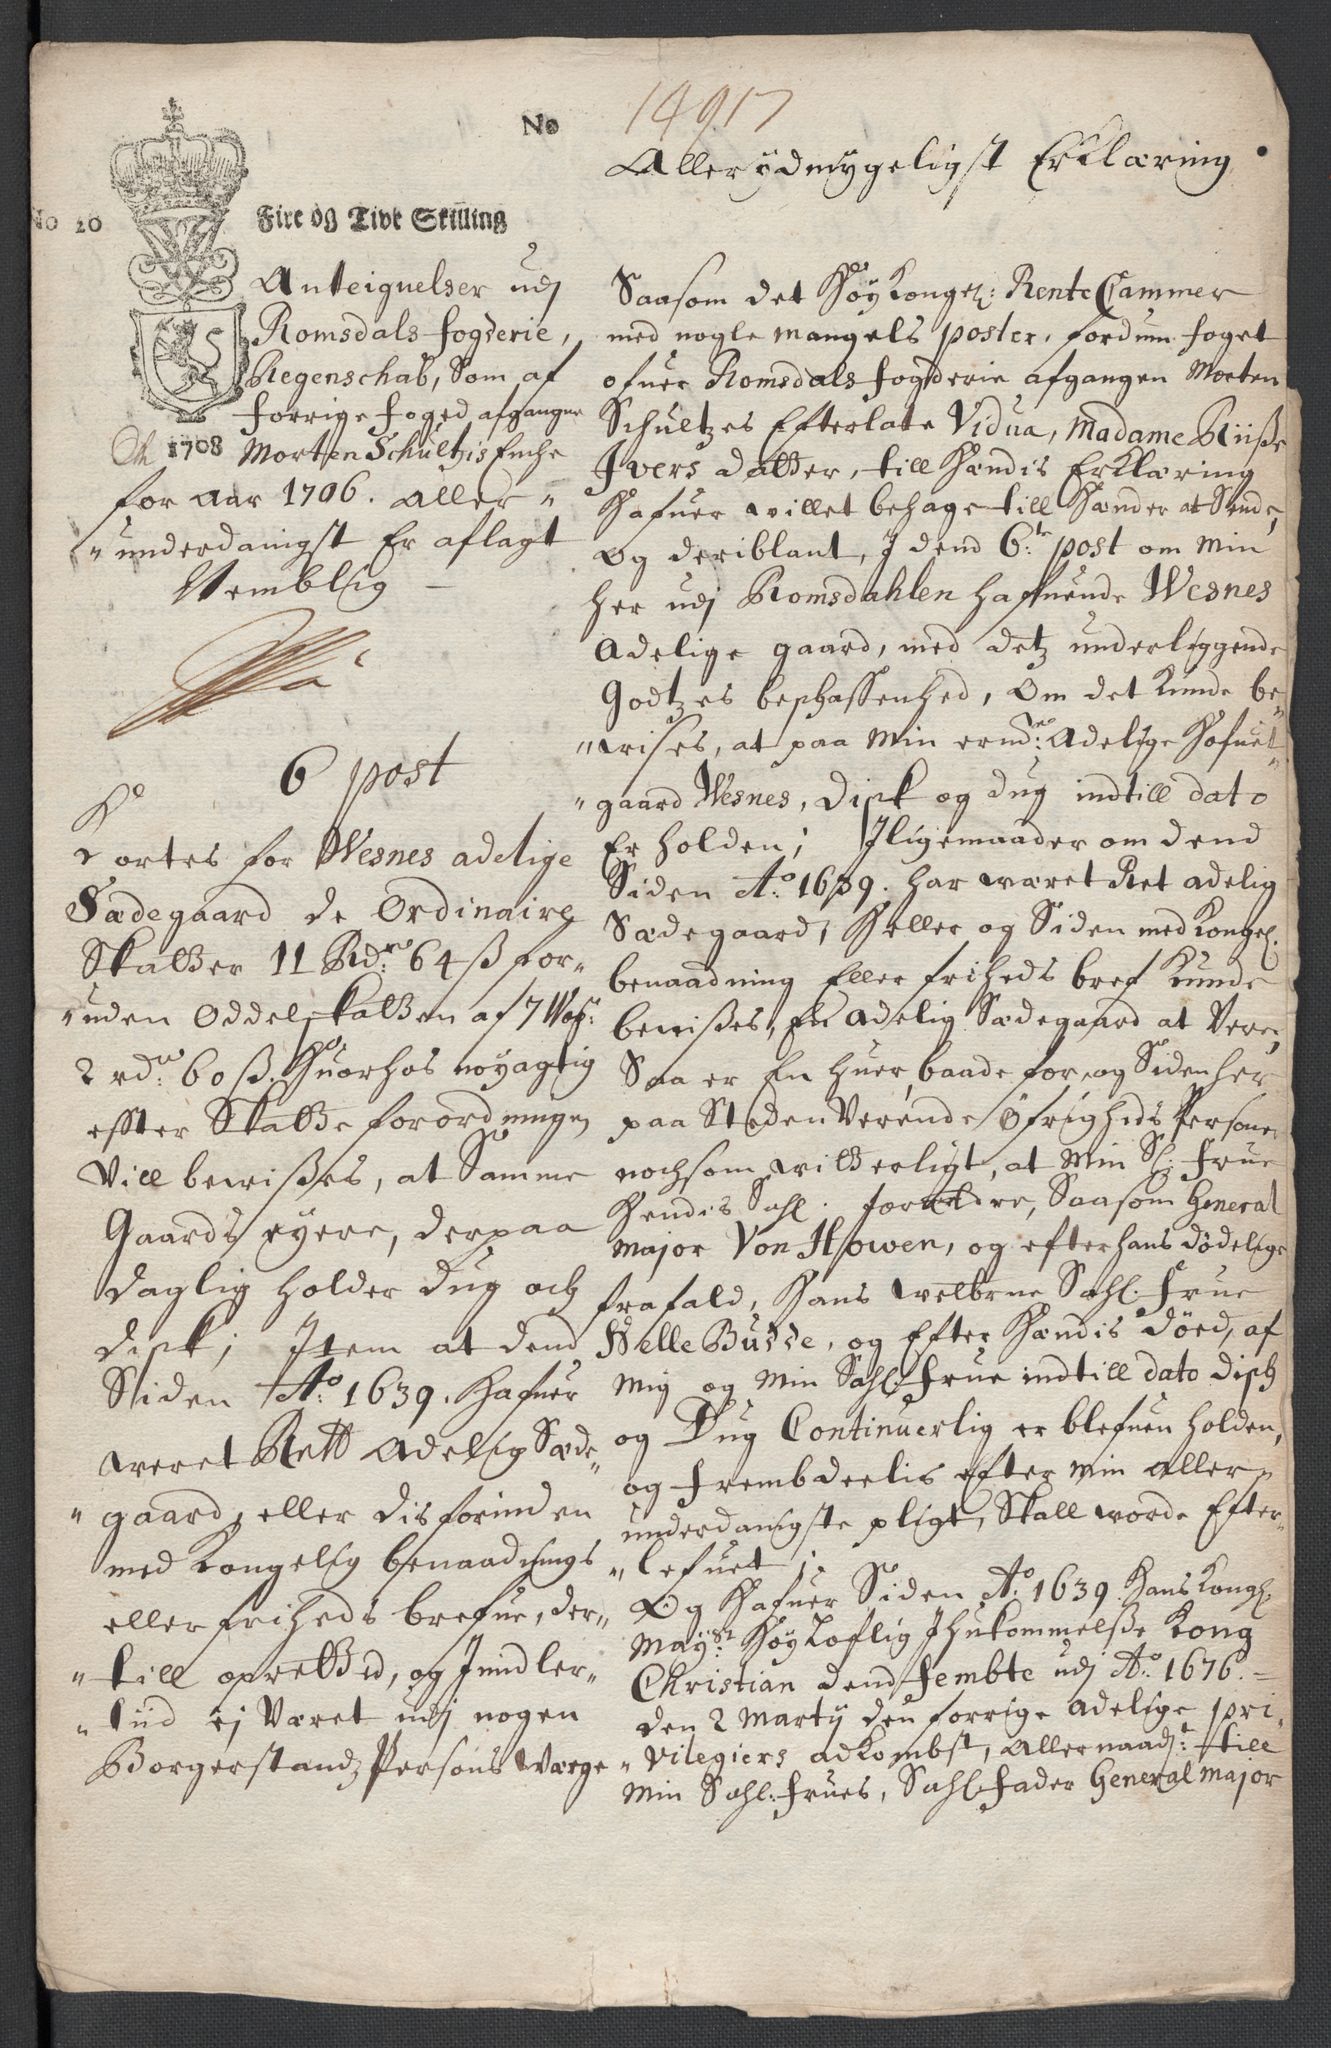 No
14917
No 20
Fire og Tive Skilling
1708
Anteignelser udj
Romsdals fogderie,
Regenschab, Som af
forrige foged afgangne
Morten Schultzis Enche
for aar 1706. aller-
underdanigst Er aflagt
Nemblig
6 post
Kortes for Wesnes adelige
Sædegaard de Ordinaire
Skatter 11 Rdr 64 ß for-
uden Oddelskatten af 7 Wog:
2 rdr: 60 ß. Huorhos nøyagtig
effter Skatte forordningen
Vill bewißes, at Samme
Gaards eyere, derpaa
daglig holder Dug och
Disk; Item at dend
Siden Ao: 1639. hafuer
weret Rett Adelig Sæde-
gaard, eller disforinden
med Kongelig benaadnings
eller friheds brefue, der-
till oprettid, og Imidler-
tiid ej Været udj nogen
Borgerstandz Persons Værge
Allerydmygeligst Erklæring
Saasom det Høy Kongel: Rente Cammer
med nogle mangels poster, fordum foget
ofuer Romsdals fogderie afgangen Morten
Schultzes Efterlatte Vidua, Madame Riiße
Ivers datter, till Hændis Erklæring
hafuer villet behage till Hænder at Sende,
og deriblant, J dend 6:te post om Min
her udj Romsdahlen hafuende Wesnes
Adelige gaard, med detz underliggende
Godtzes beskaffenhed, Om det kunde be-
wises, at paa Min ermdte: Adelige Hofuet-
gaard Wesnes, Disk og dug indtill dato
Er holden; Jligemaader om dend
Siden Ao: 1639. har wæret Ret adelig
Sædegaard, Heller og Siden med Kongel.
benaadning Eller friheds bref kunde
bewißes, En Adelig Sædegaard at Vere,
Saa er En huer, baade for, og Siden her
paa Steden Verende Øfrigheds Personer
nochsom witterligt, at Min Sl: Frue
Hendis Sahl. forældre, Saasom General
Major Von Howen, og efter hans dødelige
frafald, Hans welbrne Sahl. Frue
Helle Busse, og Efter Hændis Død, af
Mig og Min Sahl: Frue indtill dato Disk
og Dug Continuerlig er blefuen holden,
og frembdeelis efter Min aller-
underdanigste pligt, Skall worde Efter-
lefuet;
Og Hafuer Siden Ao: 1639. Hans Kongl:
Mayst: Høy Loflig Jhukommelße Kong
Christian dend Fembte udj Ao: 1676.
den 2 Marty den forrige adelige pri-
vilegiers adkombst, allernaadst: till
Min Sahl: Frues, Sahl. Fader General Major